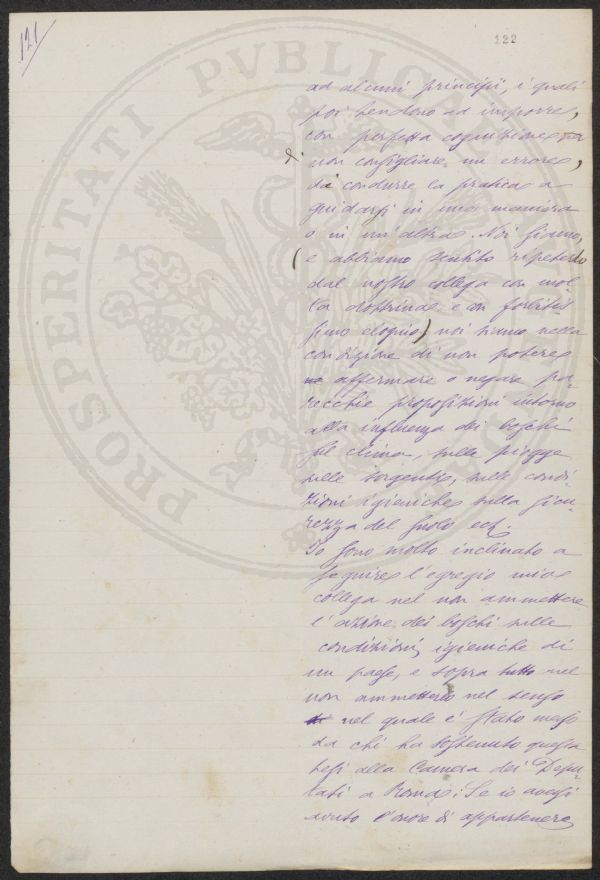 121
122
ad alcuni principii, i quali
poi tendono ad imporre,
con perfetta cognizione
non consigliare, un errore,
da condurre la pratica a
guidarsi in una maniera
o in un'altra. Noi siamo,
(e abbiamo sentito ripeterlo
dal nostro collega con mol-
ta dottrina e con forbitis-
simo eloquio) noi siamo nella
condizione di non potere
affermare o negare pa-
recchie proposizioni intorno
alla influenza dei boschi
sul clima, sulle piogge
sulle sorgenti, sulle condi-
zioni igieniche sulla sicu-
rezza del suolo ect.
Io sono molto inclinato a
seguire l'egregio mio
collega nel non ammettere
l'azione dei boschi sulle
condizioni igieniche di
un paese, e sopra tutto nel
non ammetterlo nel senso
nel quale è stato messo
da chi ha sostenuto questa
tesi alla Camera dei Depu-
tati a Roma. Se io avessi
avuto l'onore di appartenere
PROSPERITATI PVBLICAE